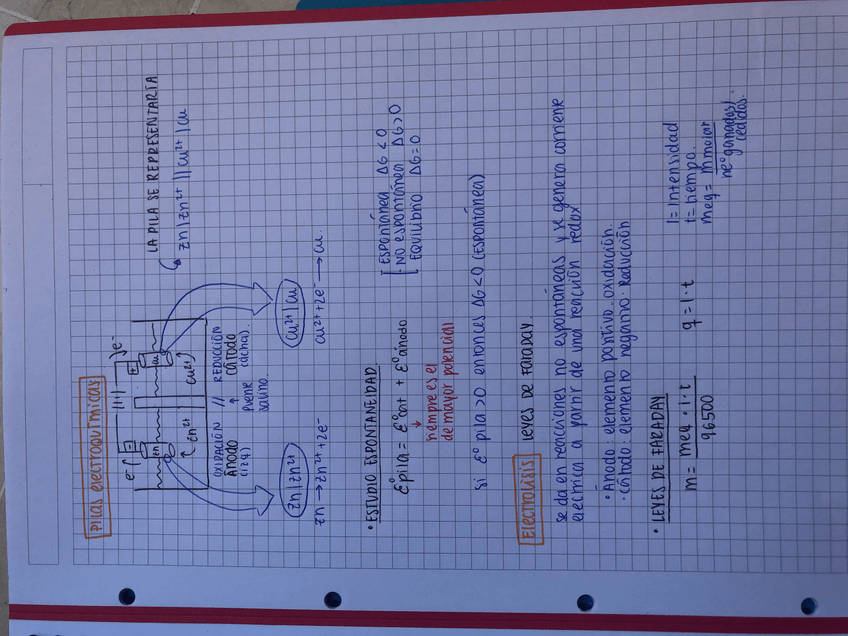 Pilas electroquímicas
e⁻
e⁻
Zn
Cu
Zn²⁺
Cu²⁺
OXIPACIÓN // REDUCCIÓN
Ánodo
(izq)
Puente
salino.
CÁTODO
(dcha).
LA PILA SE REPRESENTARÍA
Zn|Zn²⁺ || Cu²⁺ | Cu
Zn|Zn²⁺
Cu²⁺|Cu
Zn → Zn²⁺ + 2e⁻
Cu²⁺ + 2e⁻ → Cu.
• ESTUDIO ESPONTANEIDAD.
ε°pila = ε°cat + ε°ánodo
siempre es el
de mayor potencial
ESPONTÁNEA ΔG < 0
· NO ESPONTÁNEA ΔG > 0
EQUILIBRIO ΔG = 0
Si ε° pila > 0 entonces ΔG < 0 (ESPONTÁNEA)
Electrolisis LEYES DE FARADAY.
Se da en reacciones no espontáneas y se genera corriente
eléctrica a partir de una reacción redox
• Ánodo: elemento positivo. oxidación.
· Cátodo: elemento negativo. Reducción
• LEYES DE FARADAY
m = meq · I · t / 96500
q = I · t
I = Intensidad
t = tiempo.
meq = mmolar / nºe⁻ ganados/cedidos.